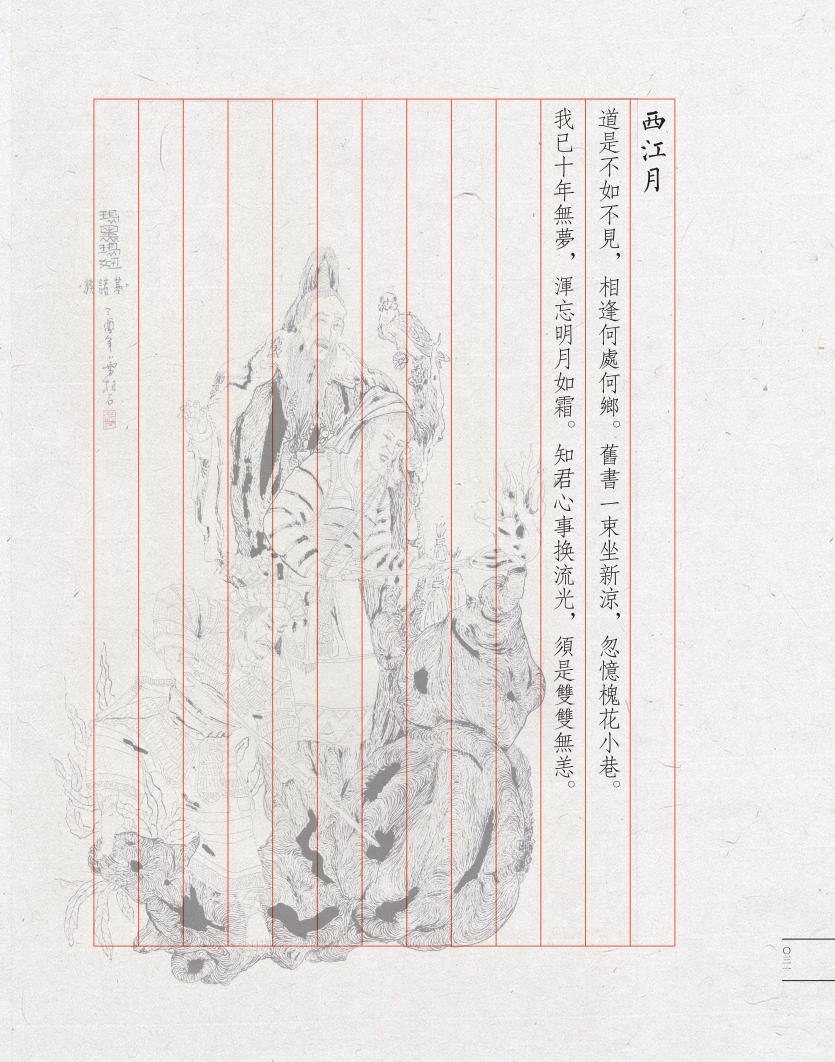 西江月
道是不如不見，相逢何處何鄉。舊書一束坐新涼，忽憶槐花小巷。
我已十年無夢，渾忘明月如霜。知君心事换流光，須是雙雙無恙。
〇三一